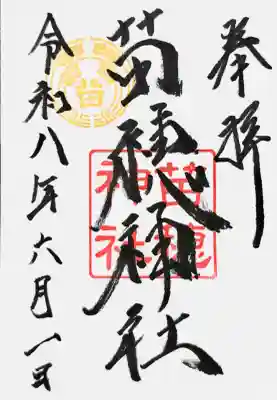 奉拝
苗穂神社
苗穂
神社
令和八年六月一日